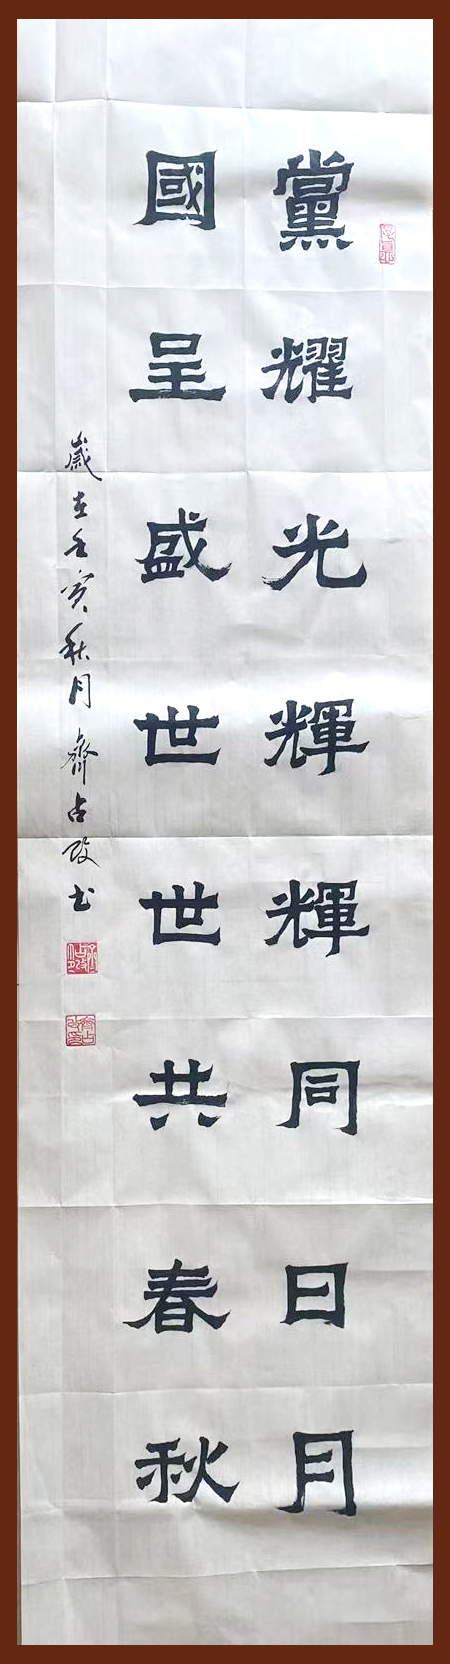 黨耀光輝輝同日月
國呈盛世世共春秋
歲在壬寅秋月齊占政书